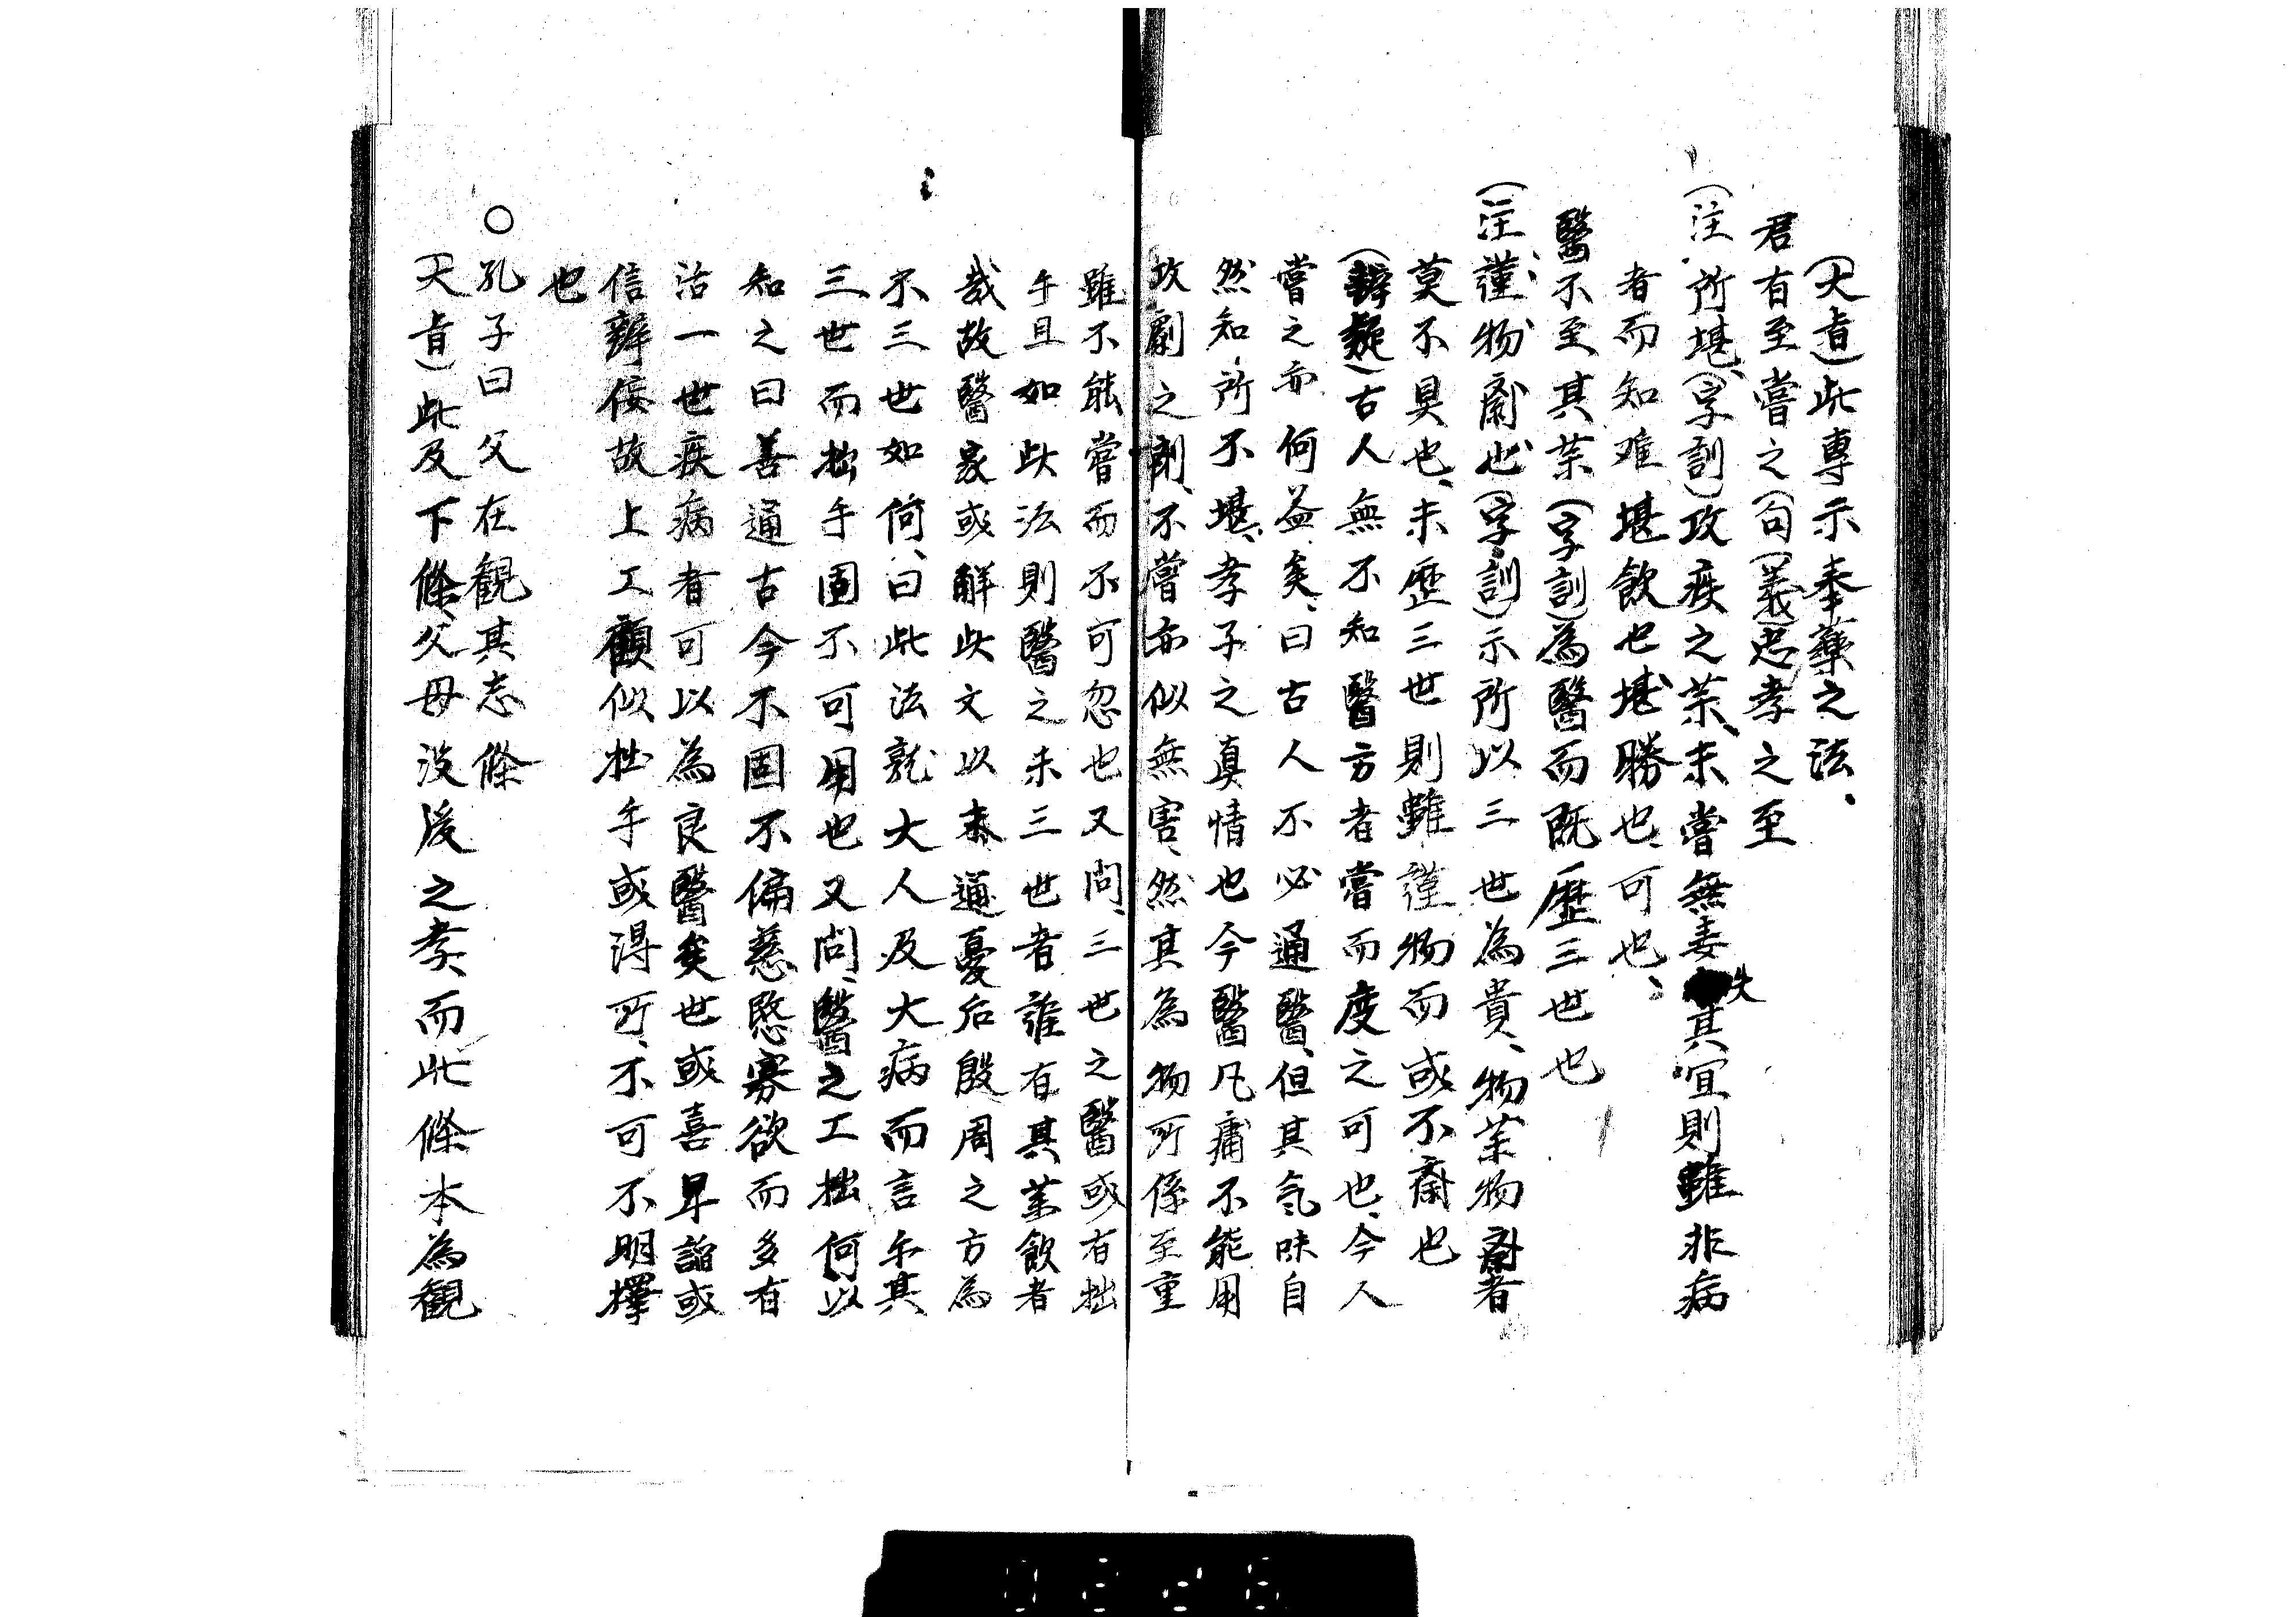 (大旨)此專示奉藥之法、
君有至嘗之(句)(義)忠孝之至
(注、所堪、(字訓)攻疾之茱、未嘗無妻失其宜則雖非病
者而知难堪飲也堪勝也、可也、
醫不至其茱(字訓)為醫而既歷三世也
(注謹物齊也(字訓)示所以三世為貴、物茱物齊者
莫不具也、未歷三世則雖謹物而或不齊也
(辨疑)古人無不知醫方者嘗而度之可也、今人
嘗之亦何益矣、曰古人不必通醫、但其氣味自
然知、所不堪、孝子之真情也今醫凡庸不能用
攻劇之劑、不嘗亦似無害、然其為物所係至重
雖不能嘗而不可忽也又問、三世之醫或有拙
手且如此法則醫之未三世者誰有其茱飲者
哉故醫家或解此文以未通憂后殷周之方為
不三世如何、曰此法就大人及大病而言尓其
三世而拙手固不可用也又問、醫之工拙何以
知之曰善通古今不固不偏慈愍寡欲而多有
治一世疾病者可以為良醫矣世或喜早諂或
信辨佞故上工顧似拙手或得所、不可不明擇
也
〇孔子曰父在觀其志條
(大旨)此及下條、父母没後之孝、而此條本為觀